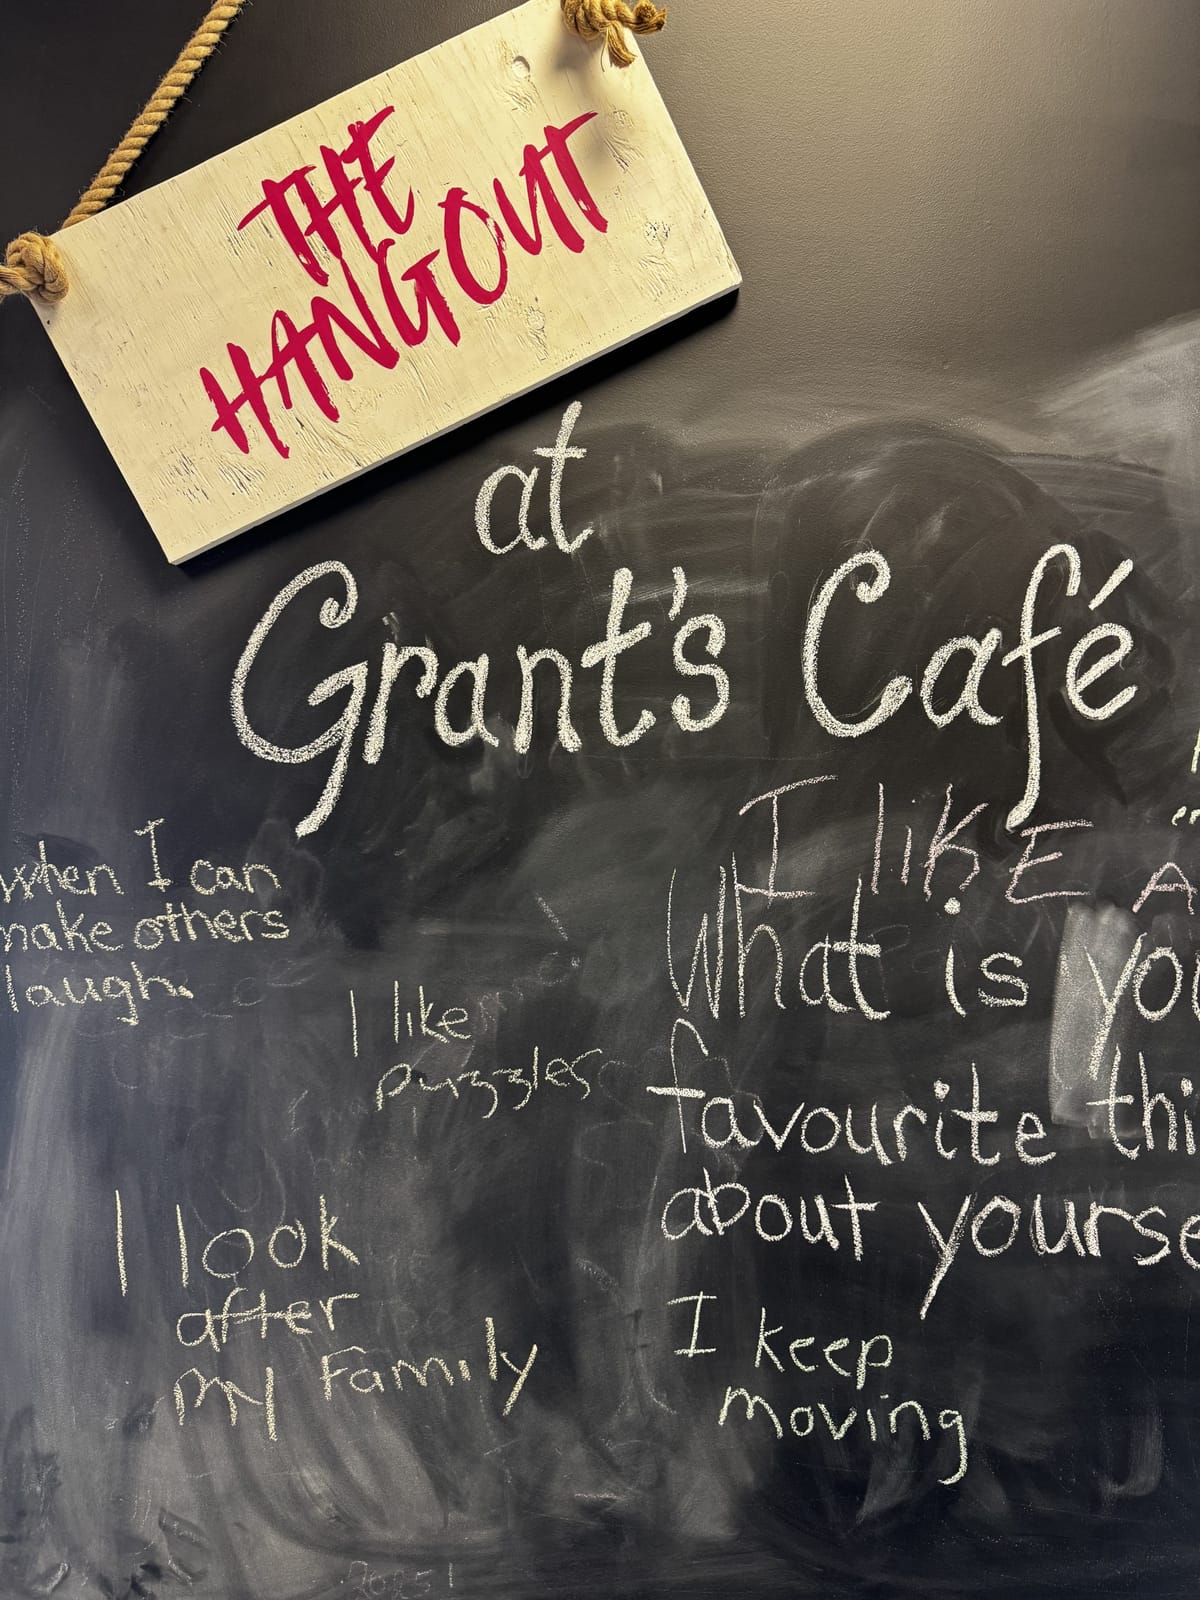 THE
HANGOUT
at
Grant's Café
I likE A
when I can
make others
laugh.
I like
puzzles
What is you
favourite thi
about yourse
I look
after
my Family
I keep
moving
2025!